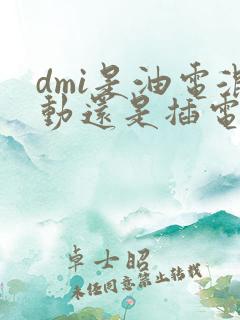 dmi是油電混
動還是插電
卓士昭
未经同意禁止转载